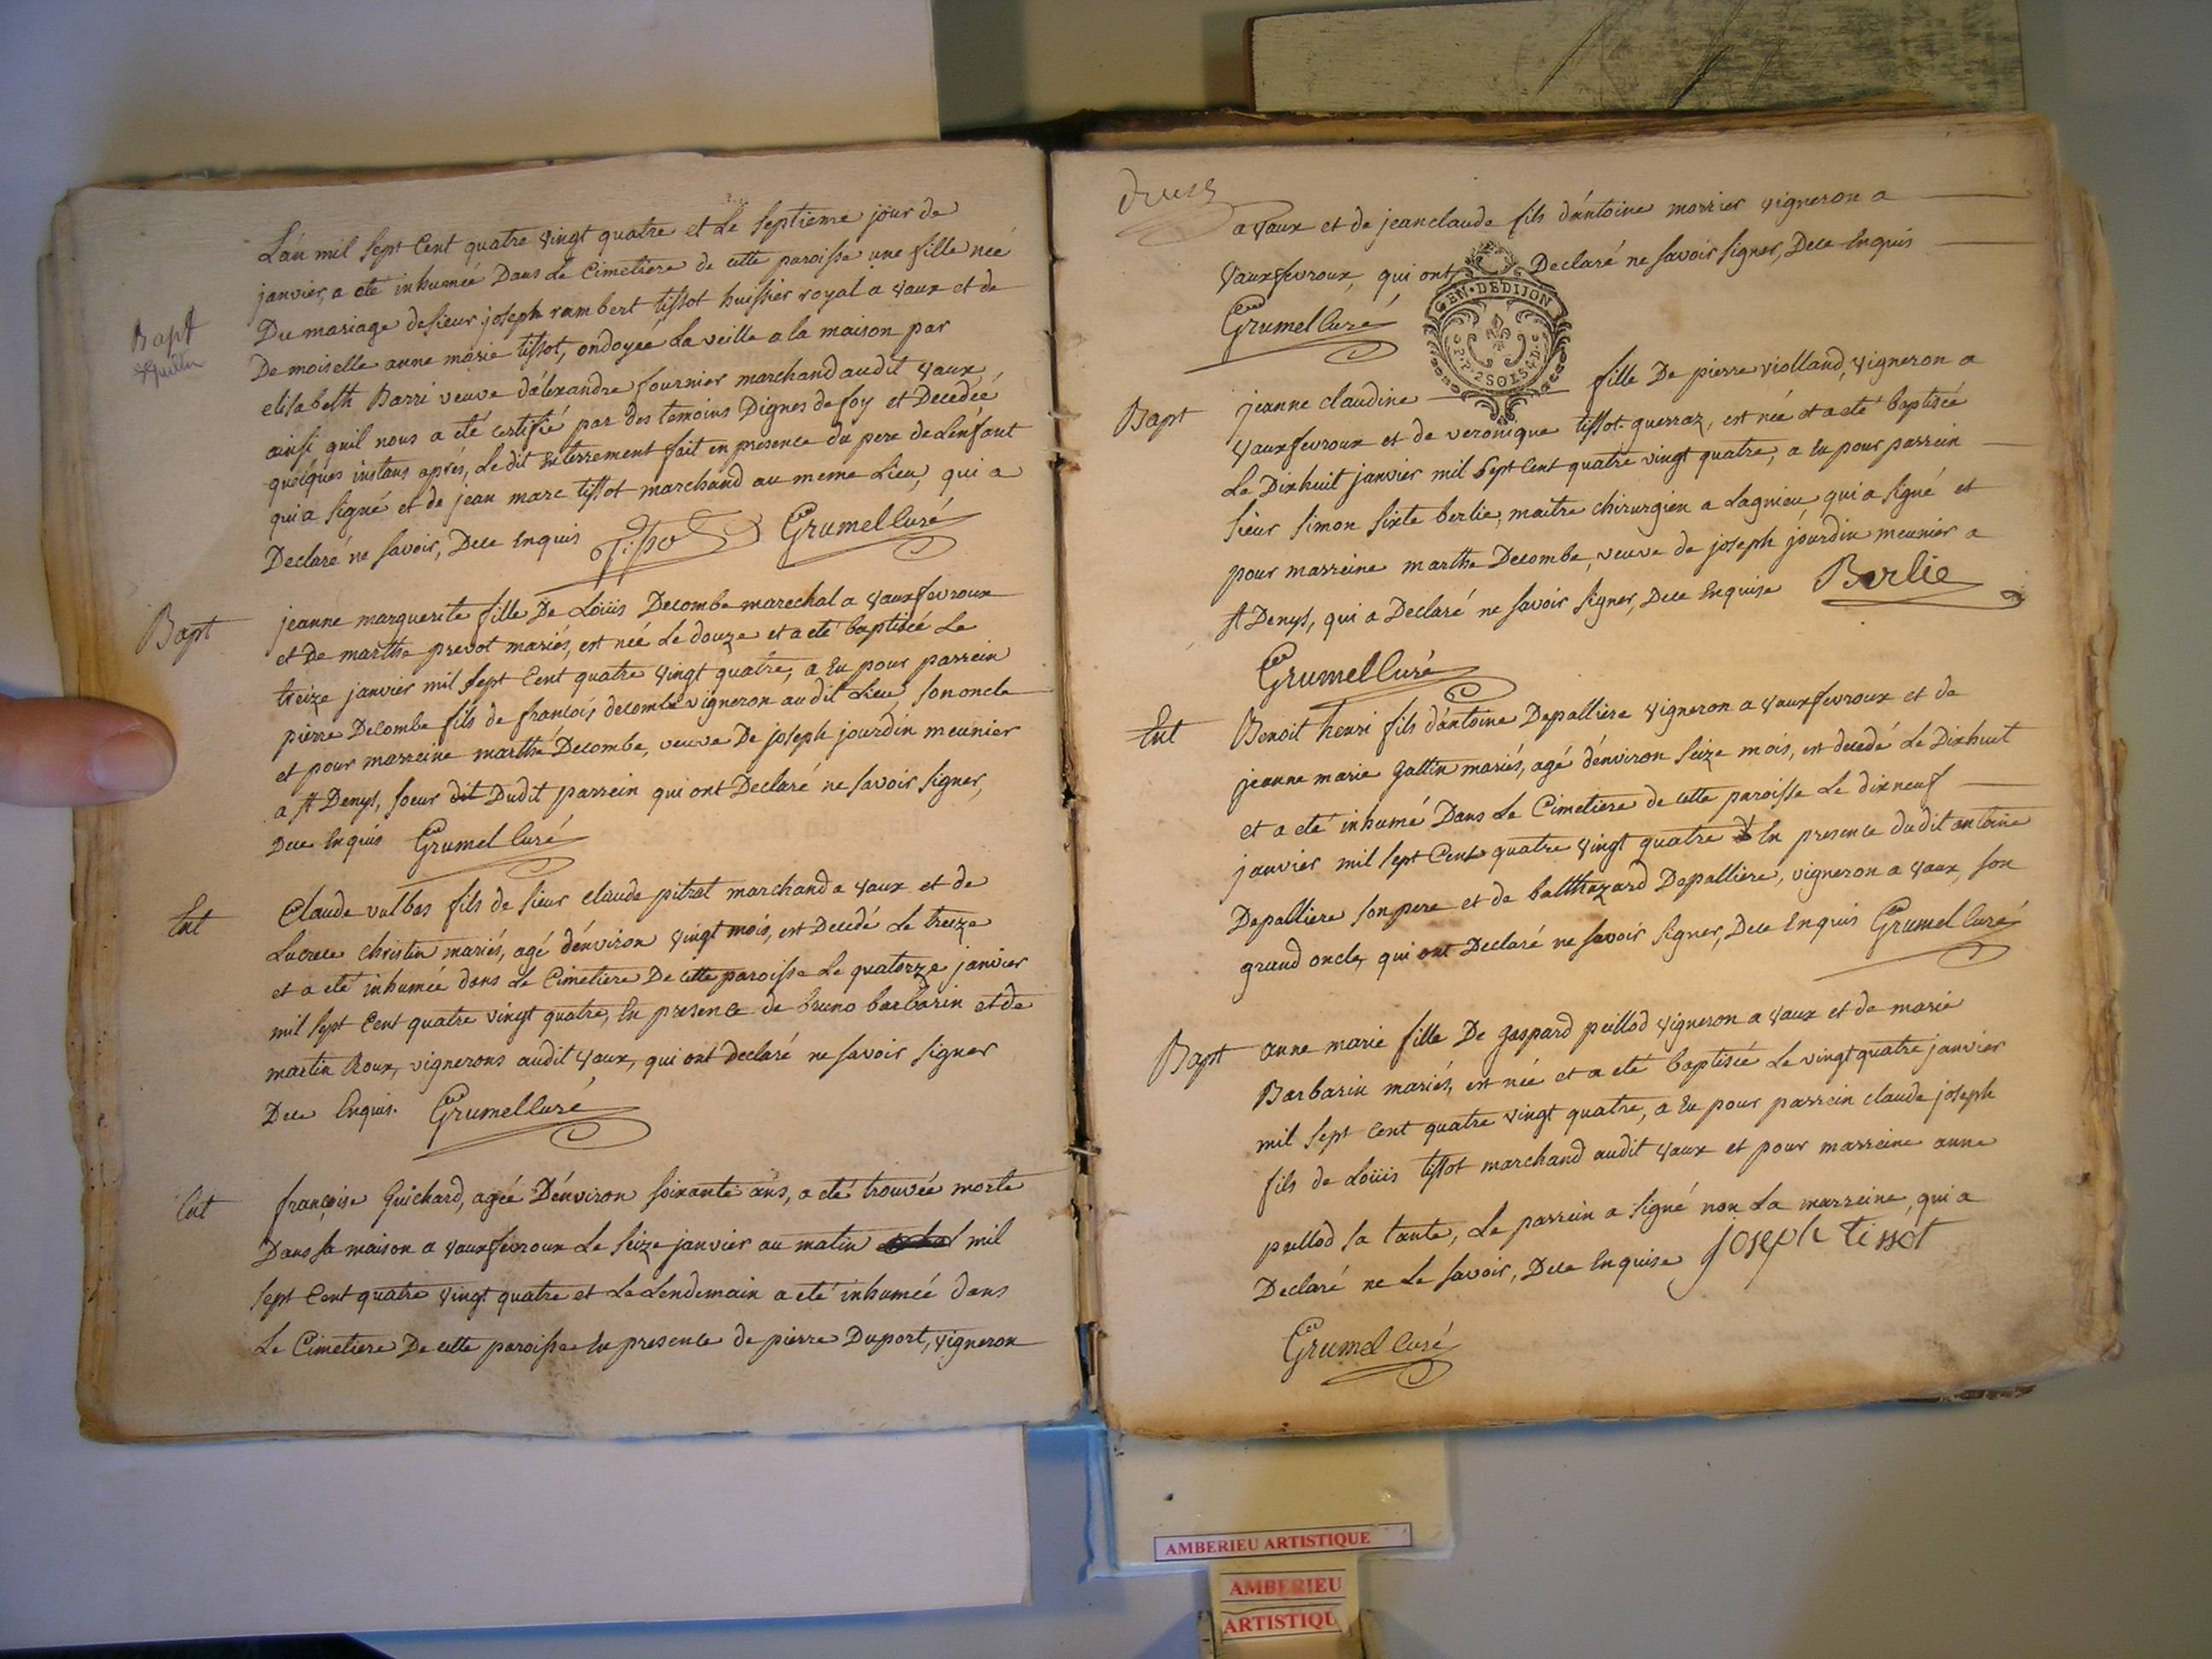 L'an mil sept Cent quatre vingt quatre et Le septieme jour de
janvier, a eté inhumée Dans Le Cimetiere de cette paroisse une fille neé
Bapt
Du mariage de sieur joseph rambert tissot huissier royal a vaux et de
Demoiselle anne marie tissot, ondoyeé La veille a la maison par
elisabeth Barri veuve d'alexandre fournier marchand audit vaux
ainsi quil nous a eté certifié par des temoins Dignes de foy et Decedeé
quelques instans aprés, Le dit Enterrement fait en presence du pere de L'enfant
qui a signé et de jean marc tissot marchand au meme Lieu, qui a
Declaré ne savoir, Dece Enquis Tissot Grumel Curé
Bapt jeanne marguerite fille De Loüis Decombe marechal a vauxfevroux
et De marthe prevot mariés, est neé Le douze et a eté baptiseé Le
treize janvier mil sept Cent quatre vingt quatre, a Eu pour parrein
pierre Decombe fils de francois decombe vigneron audit Lieu, son oncle
et pour marreine marthe Decombe, veuve De joseph jourdin meunier
a st Denys, soeur dit Dudit parrein qui ont Declaré ne savoir signer,
Dece Enquis Grumel Curé
Ent Claude vulbas fils de sieur claude pitrat marchand a vaux et de
Lucrece christin mariés, agé d'environ vingt mois, est Decedé Le treize
et a eté inhumeé dans Le Cimetiere De cette paroisse Le quatorze janvier
mil sept Cent quatre vingt quatre, En presence de bruno barbarin et de
martin Roux, vignerons audit vaux, qui ont declaré ne savoir signer
Dece Enquis. Grumel Curé
Ent françoise Guichard, ageé D'environ soixante ans, a eté trouveé morte
Dans sa maison a vauxfevroux Le seize janvier au matin mil
sept Cent quatre vingt quatre et Le Lendemain a eté inhumeé dans
Le Cimetiere De cette paroisse En presence de pierre Duport, vigneron
a vaux et de jeanclaude fils d'antoine morrier vigneron a
vauxfevroux, qui ont Declaré ne savoir signer, Dece Enquis
GEN·DEDIJON
P.P. 2 SOLS 4 D.
Grumel Curé
Bapt jeanne claudine fille De pierre violland, vigneron a
vauxfevroux et de veronique tissot-guerraz, est neé et a eté baptiseé
Le Dixhuit janvier mil sept Cent quatre vingt quatre, a Eu pour parrein
sieur simon sixte berlie, maitre chirurgien a Lagnieu, qui a signé et
pour marreine marthe Decombe, veuve de joseph jourdin meunier a
st Denys, qui a Declaré ne savoir signer, Dece Enquise Berlie
Grumel Curé
Ent Benoit henri fils d'antoine Depalliere vigneron a vauxfevroux et de
jeanne marie Gallin mariés, agé d'environ seize mois, est decedé Le Dixhuit
et a eté inhumé Dans Le Cimetiere de cette paroisse Le dixneuf
janvier mil sept Cent quatre vingt quatre En presence dudit antoine
Depalliere son pere et de balthazard Depalliere, vigneron a vaux, son
grand oncle, qui ont Declaré ne savoir signer, Dece Enquis Grumel Curé
Bapt anne marie fille De gaspard peillod vigneron a vaux et de marie
Barbarin mariés, est neé et a eté baptiseé Le vingt quatre janvier
mil sept Cent quatre vingt quatre, a Eu pour parrein claude joseph
fils de Loüis tissot marchand audit vaux et pour marreine anne
peillod sa tante, Le parrein a signé non La marreine, qui a
Declaré ne Le savoir, Dece Enquise joseph tissot
Grumel Curé
AMBERIEU ARTISTIQUE
AMBERIEU
ARTISTIQU